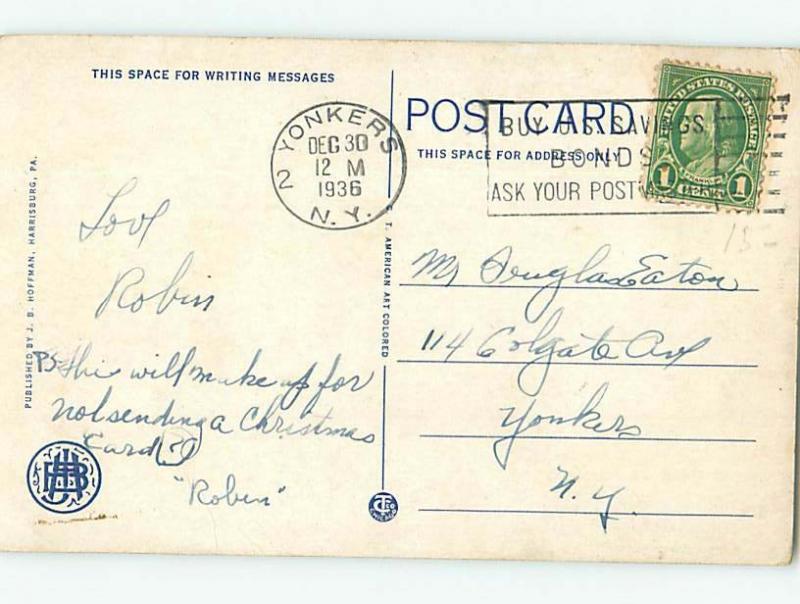 THIS SPACE FOR WRITING MESSAGES
POST CARD
THIS SPACE FOR ADDRESS ONLY
YONKERS
DEC 30
12 M
1936
N.Y.
2
BUY U.S. SAVINGS
BONDS
ASK YOUR POST
UNITED STATES POSTAGE
FRANKLIN
1 1
15-
Love
Robin
PS This will make up for
not sending a Christmas
Card (?)
"Robin"
Mr Douglas Eaton
114 Colgate Ave
Yonkers
N.Y.
PUBLISHED BY J. B. HOFFMAN, HARRISBURG, PA.
C. T. AMERICAN ART COLORED